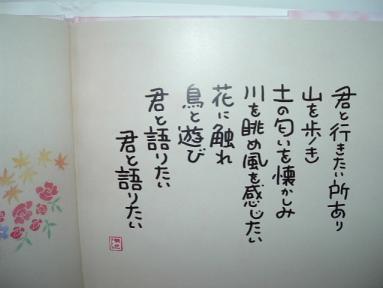 君と行きたい所あり
山を歩き
土の匂いを懐かしみ
川を眺め風を感じたい
花に触れ
鳥と遊び
君と語りたい
君と語りたい